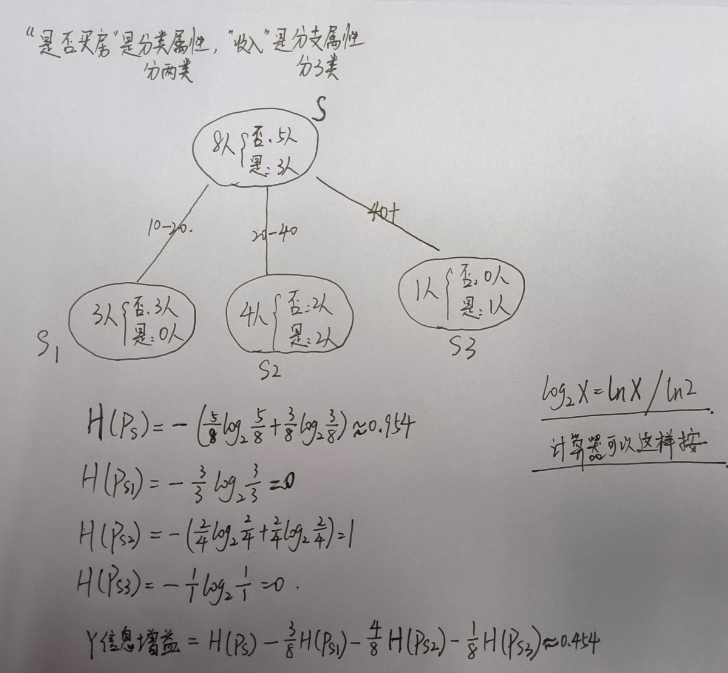 “是否买房”是分类属性，“收入”是分支属性
分两类 分3类
S
8人{否:5人
是:3人
10-20. 20-40 40+
3人{否:3人
是:0人
S1
4人{否:2人
是:2人
S2
1人{否:0人
是:1人
S3
log₂X=lnX/ln2
计算器可以这样按
H(Ps)=-(5/8log₂5/8+3/8log₂3/8)≈0.954
H(Ps1)=-3/3log₂3/3=0
H(Ps2)=-(2/4log₂2/4+2/4log₂2/4)=1
H(Ps3)=-1/1log₂1/1=0.
Y信息增益=H(Ps)-3/8H(Ps1)-4/8H(Ps2)-1/8H(Ps3)≈0.454